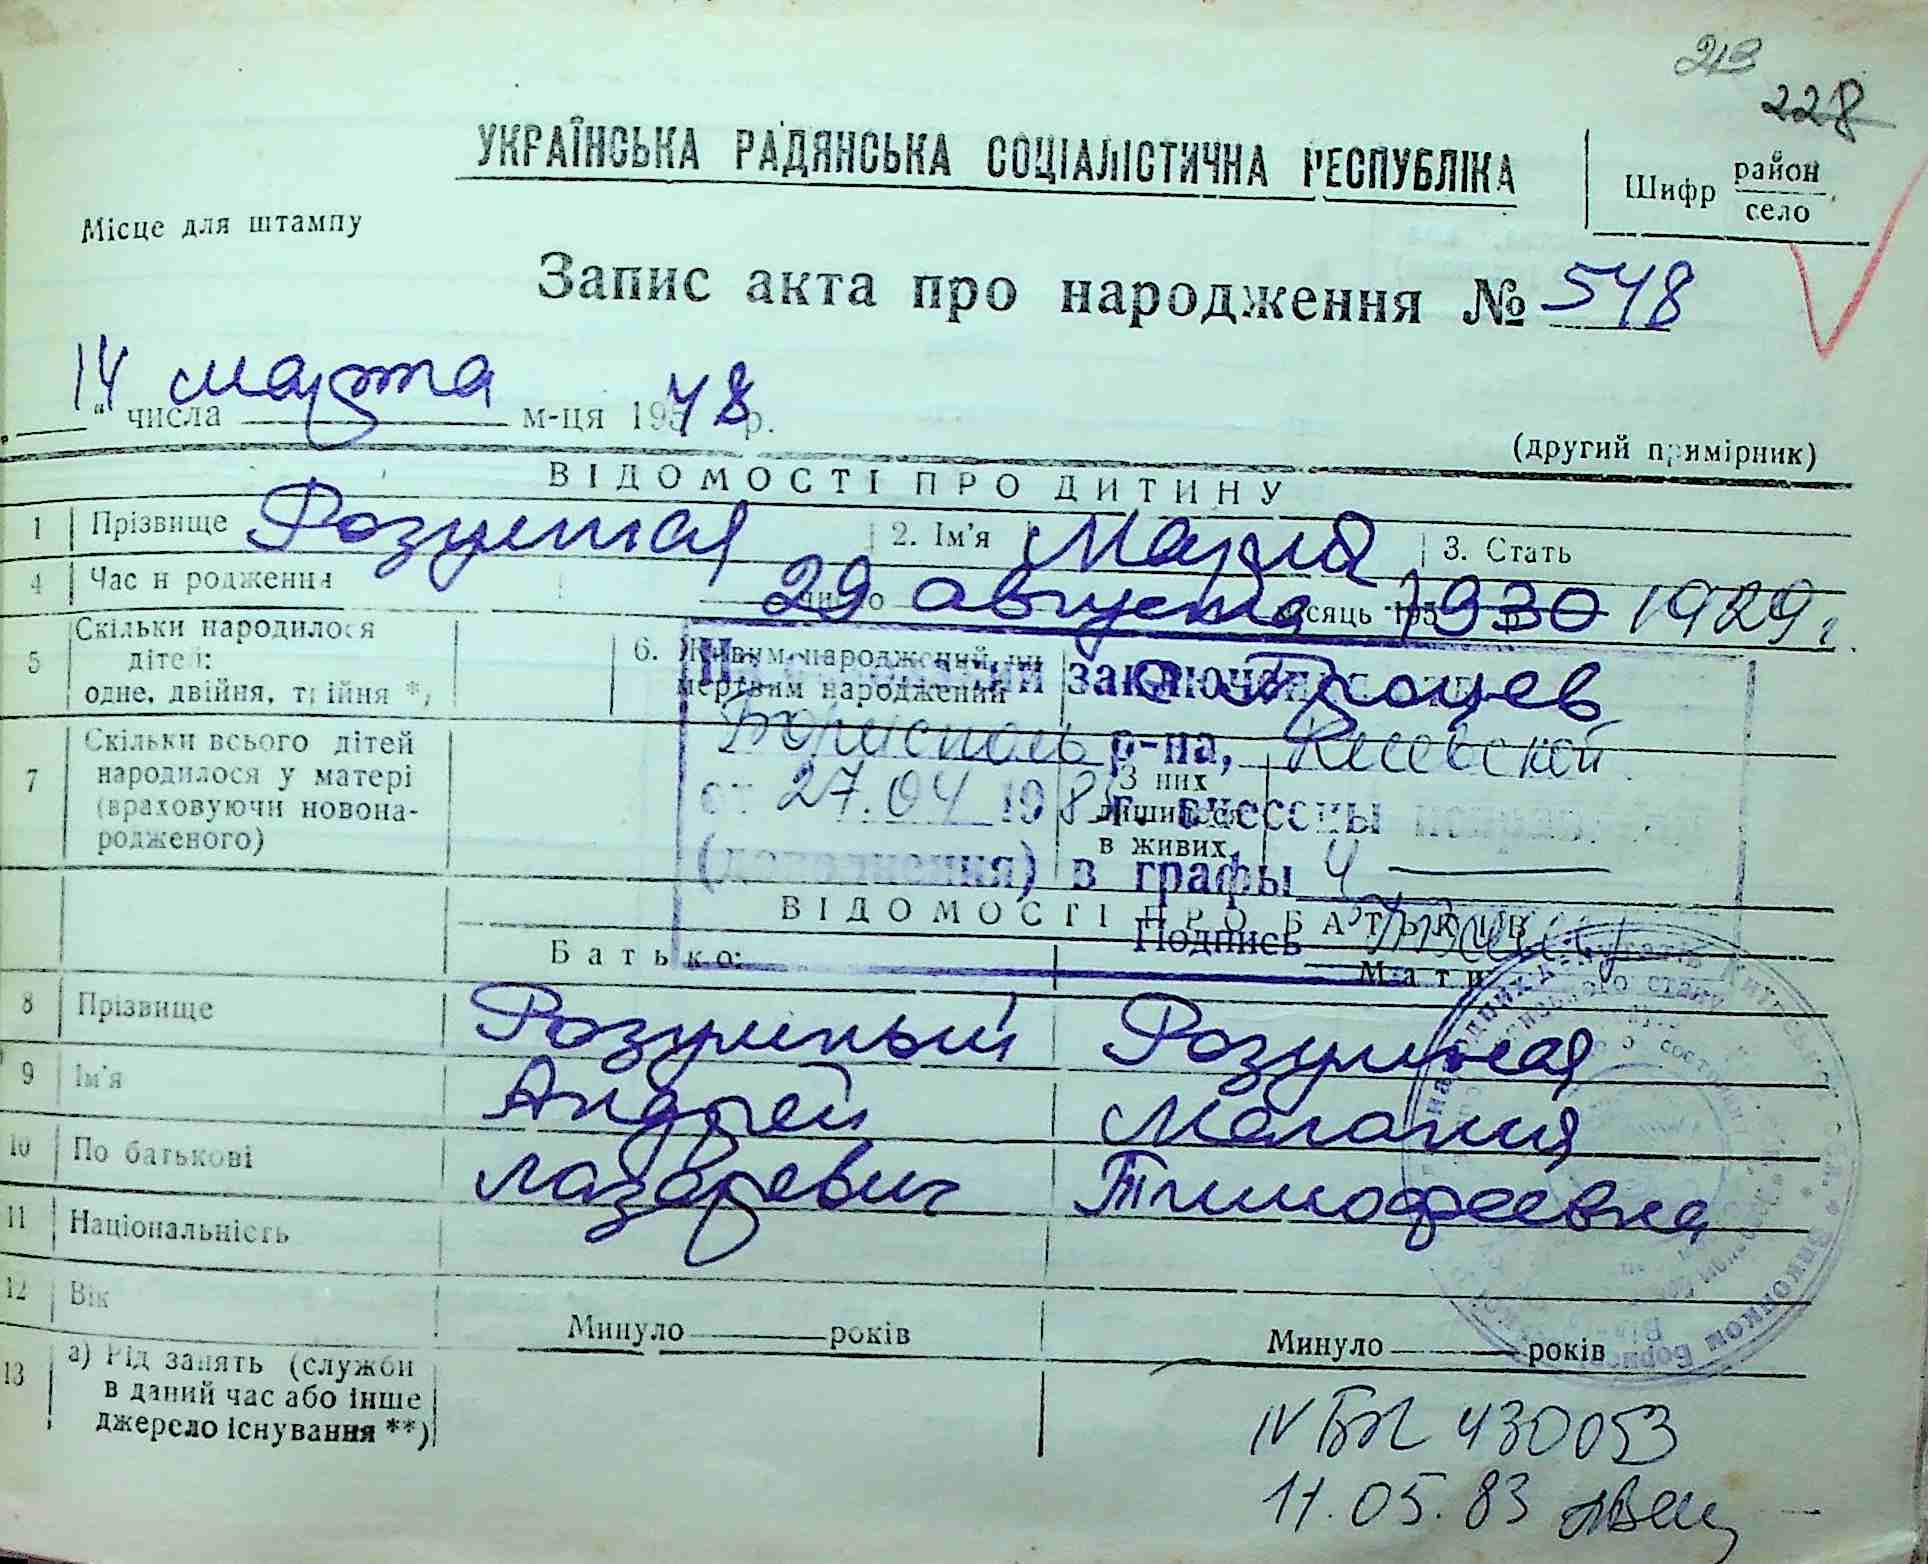 213
228
УКРАЇНСЬКА РАДЯНСЬКА СОЦІАЛІСТИЧНА РЕСПУБЛІКА
Шифр район
село
Місце для штампу
Запис акта про народження № 548
14 числа марта м-ця 1948 р.
(другий примірник)
ВІДОМОСТІ ПРО ДИТИНУ
1 Прізвище Розумная 2. Ім'я Мария 3. Стать
4 Час народження 29 число августа місяць 1930 1929 г.
5 Скільки народилося дітей: одне, двійня, трійня *)
6. Живим народжений чи мертвим народжений
заключения
Борисполь р-на, Киевской
от 27.04 1983 г. внесены
(дополнения) в графы 4
Подпись
7 Скільки всього дітей народилося у матері (враховуючи новонародженого)
З них лишилося в живих
ВІДОМОСТІ ПРО БАТЬКІВ
Батько: Мати
8 Прізвище Розумный Розумная
9 Ім'я Андрей Мелания
10 По батькові Лазаревич Тимофеевна
11 Національність
12 Вік Минуло років Минуло років
13 а) Рід занять (служби в даний час або інше джерело існування **)
IV БК 430053
11.05.83